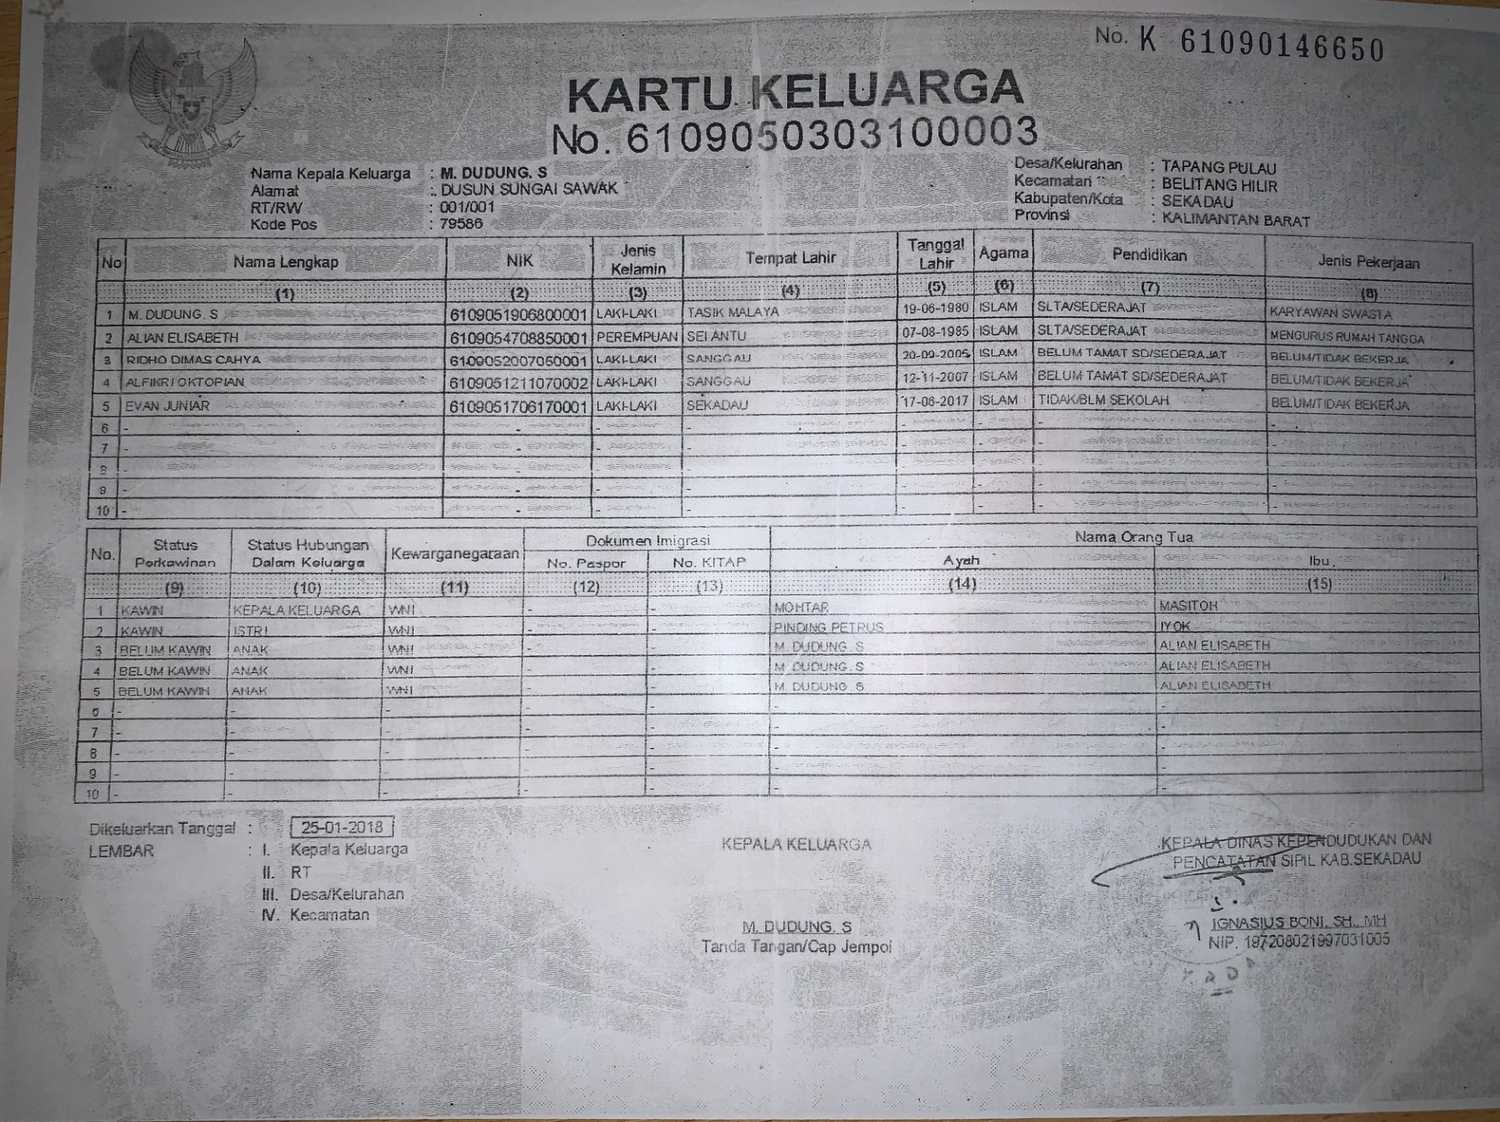 No. K 61090146650
KARTU KELUARGA
No. 6109050303100003
Nama Kepala Keluarga : M. DUDUNG. S
Alamat : DUSUN SUNGAI SAWAK
RT/RW : 001/001
Kode Pos : 79586
Desa/Kelurahan : TAPANG PULAU
Kecamatan : BELITANG HILIR
Kabupaten/Kota : SEKADAU
Provinsi : KALIMANTAN BARAT
No Nama Lengkap NIK Jenis Kelamin Tempat Lahir Tanggal Lahir Agama Pendidikan Jenis Pekerjaan
(1) (2) (3) (4) (5) (6) (7) (8)
1 M. DUDUNG. S 6109051906800001 LAKI-LAKI TASIK MALAYA 19-06-1980 ISLAM SLTA/SEDERAJAT KARYAWAN SWASTA
2 ALIAN ELISABETH 6109054708850001 PEREMPUAN SEI ANTU 07-08-1985 ISLAM SLTA/SEDERAJAT MENGURUS RUMAH TANGGA
3 RIDHO DIMAS CAHYA 6109052007050001 LAKI-LAKI SANGGAU ISLAM BELUM TAMAT SD/SEDERAJAT BELUM/TIDAK BEKERJA
4 ALFIKRI OKTOPIAN 6109051211070002 LAKI-LAKI SANGGAU 12-11-2007 ISLAM BELUM TAMAT SD/SEDERAJAT BELUM/TIDAK BEKERJA
5 EVAN JUNIAR 6109051706170001 LAKI-LAKI SEKADAU 17-06-2017 ISLAM TIDAK/BLM SEKOLAH BELUM/TIDAK BEKERJA
6 - - - - - - - -
7 - - - - - - - -
8 - - - - - - - -
9 - - - - - - - -
10 - - - - - - - -
No. Status Perkawinan Status Hubungan Dalam Keluarga Kewarganegaraan Dokumen Imigrasi Nama Orang Tua
No. Paspor No. KITAP Ayah Ibu
(9) (10) (11) (12) (13) (14) (15)
1 KAWIN KEPALA KELUARGA WNI - - MOHTAR MASITOH
2 KAWIN ISTRI WNI - - PINDING PETRUS IYOK
3 BELUM KAWIN ANAK WNI - - M. DUDUNG. S ALIAN ELISABETH
4 BELUM KAWIN ANAK WNI - - M. DUDUNG. S ALIAN ELISABETH
5 BELUM KAWIN ANAK WNI - - M. DUDUNG. S ALIAN ELISABETH
6 - - - - - - -
7 - - - - - - -
8 - - - - - - -
9 - - - - - - -
10 - - - - - - -
Dikeluarkan Tanggal : 25-01-2018
LEMBAR : I. Kepala Keluarga
II. RT
III. Desa/Kelurahan
IV. Kecamatan
KEPALA KELUARGA
M. DUDUNG. S
Tanda Tangan/Cap Jempol
KEPALA DINAS KEPENDUDUKAN DAN
PENCATATAN SIPIL KAB.SEKADAU
IGNASIUS BONI, SH., MH
NIP. 197208021997031005